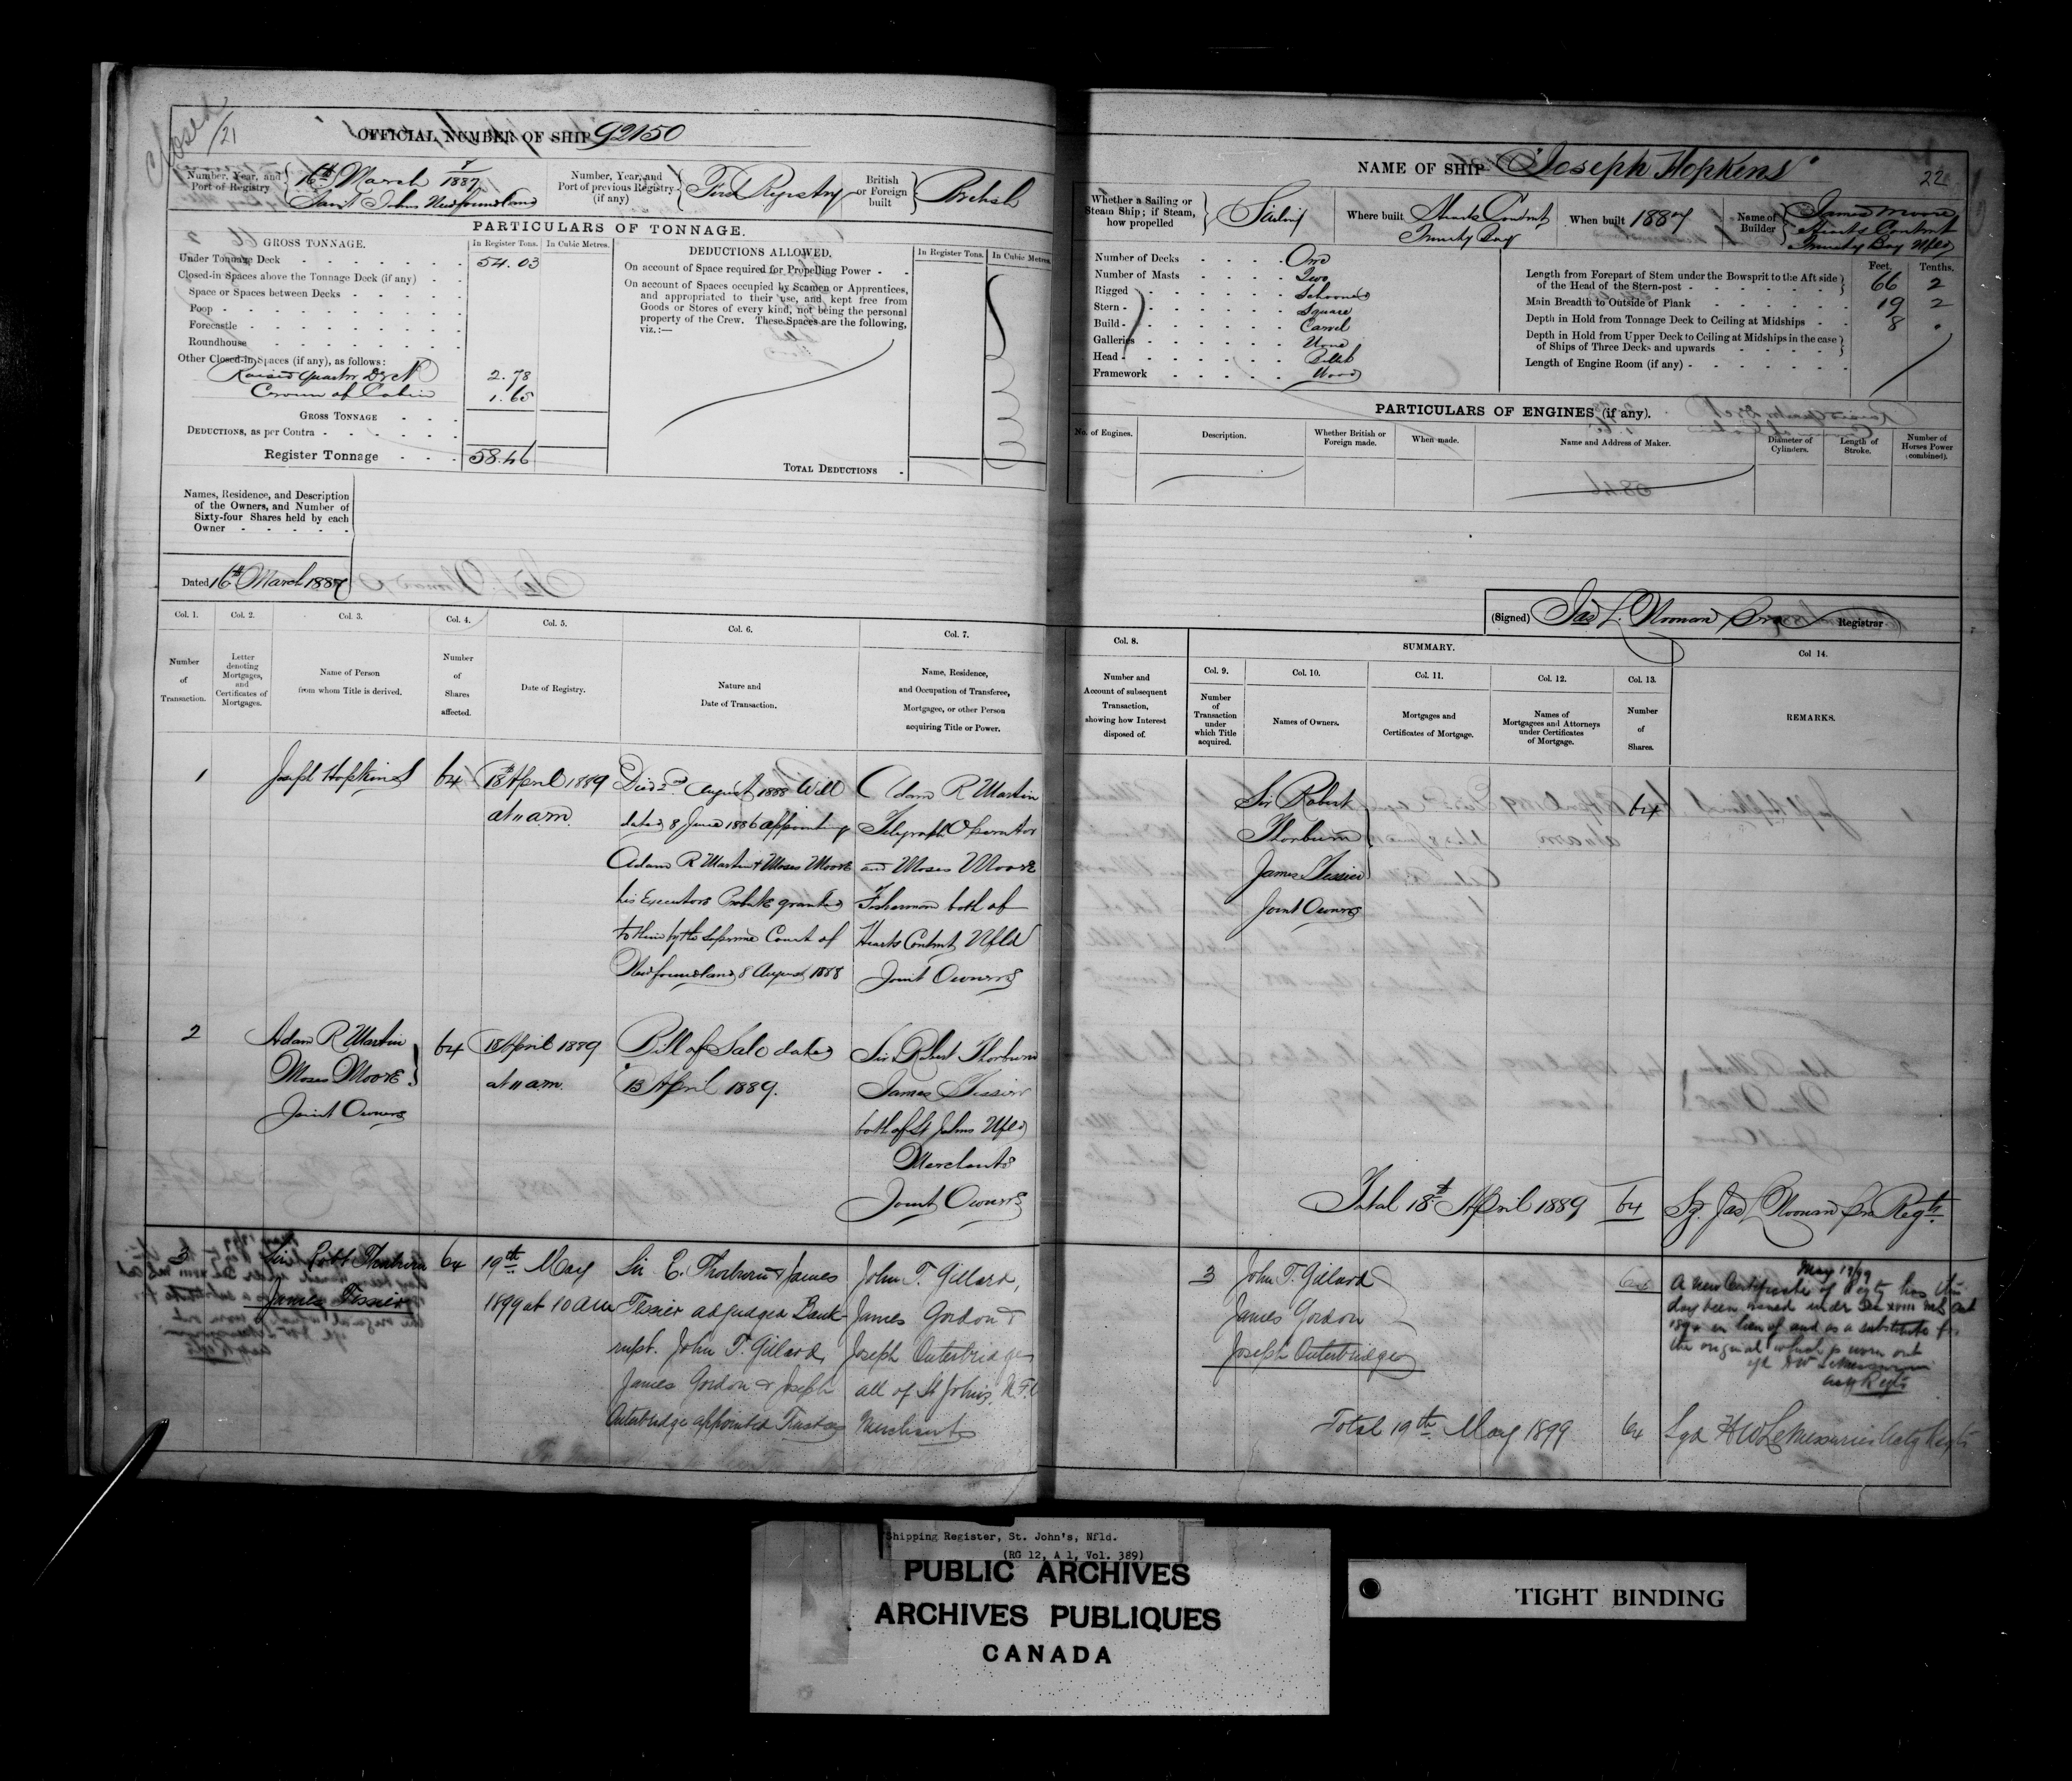 Closed
21
OFFICIAL NUMBER OF SHIP 92150
Number, Year, and Port of Registry
16th March 1887
Saint Johns Newfoundland
Number, Year, and Port of previous Registry (if any)
First Registry
British or Foreign built
British
PARTICULARS OF TONNAGE.
GROSS TONNAGE.
In Register Tons.
In Cubic Metres.
Under Tonnage Deck 54.03
Closed-in Spaces above the Tonnage Deck (if any)
Space or Spaces between Decks
Poop
Forecastle
Roundhouse
Other Closed-in Spaces (if any), as follows:
Raised Quarter Deck 2.78
Crown of Cabin 1.65
GROSS TONNAGE
DEDUCTIONS, as per Contra
Register Tonnage 58.46
DEDUCTIONS ALLOWED.
In Register Tons.
In Cubic Metres.
On account of Space required for Propelling Power
On account of Spaces occupied by Seamen or Apprentices,
and appropriated to their use, and kept free from
Goods or Stores of every kind, not being the personal
property of the Crew. These Spaces are the following,
viz.:—
TOTAL DEDUCTIONS
Names, Residence, and Description
of the Owners, and Number of
Sixty-four Shares held by each
Owner
Dated 16th March 1887
Col. 1.
Number of Transaction.
Col. 2.
Letter denoting Mortgages, and Certificates of Mortgages.
Col. 3.
Name of Person from whom Title is derived.
Col. 4.
Number of Shares affected.
Col. 5.
Date of Registry.
Col. 6.
Nature and Date of Transaction.
Col. 7.
Name, Residence, and Occupation of Transferee, Mortgagee, or other Person acquiring Title or Power.
1
Joseph Hopkins
64
18th April 1889
at 11 am.
Died 2nd August 1888 Will
dated 8 June 1886 appointing
Adam R Martin & Moses Moore
his Executors Probate granted
to them by the Supreme Court of
Newfoundland 8 August 1888
Adam R Martin
Telegraph Operator
and Moses Moore
Fisherman both of
Hearts Content Nfld
Joint Owners
2
Adam R Martin
Moses Moore
Joint Owners
64
18 April 1889
at 11 am.
Bill of Sale dated
13 April 1889.
Sir Robert Thorburn
James Tessier
both of St Johns Nfld
Merchants
Joint Owners
3
Sir Robt Thorburn
James Tessier
64
19th May
1899 at 10 am
Sir R. Thorburn & James
Tessier adjudged Bank-
rupt. John T. Gillard,
James Gordon & Joseph
Outerbridge appointed Trustees
John T. Gillard,
James Gordon &
Joseph Outerbridge
all of St Johns, N.F.
Merchants
NAME OF SHIP "Joseph Hopkins"
22
Whether a Sailing or Steam Ship; if Steam, how propelled
Sailing
Where built
Hearts Content
Trinity Bay
When built 1887
Name of Builder
James Moore
Hearts Content
Trinity Bay Nfld
Number of Decks One
Number of Masts Two
Rigged Schooner
Stern Square
Build Carvel
Galleries None
Head Billet
Framework Wood
Feet. Tenths.
Length from Forepart of Stem under the Bowsprit to the Aft side
of the Head of the Stern-post 66 2
Main Breadth to Outside of Plank 19 2
Depth in Hold from Tonnage Deck to Ceiling at Midships 8 .
Depth in Hold from Upper Deck to Ceiling at Midships in the case
of Ships of Three Decks and upwards
Length of Engine Room (if any)
PARTICULARS OF ENGINES (if any).
No. of Engines.
Description.
Whether British or Foreign made.
When made.
Name and Address of Maker.
Diameter of Cylinders.
Length of Stroke.
Number of Horses Power (combined).
(Signed) Jas L. Noonan Registrar
Col. 8.
Number and Account of subsequent Transaction, showing how Interest disposed of.
SUMMARY.
Col. 9.
Number of Transaction under which Title acquired.
Col. 10.
Names of Owners.
Col. 11.
Mortgages and Certificates of Mortgage.
Col. 12.
Names of Mortgagees and Attorneys under Certificates of Mortgage.
Col. 13.
Number of Shares.
Col 14.
REMARKS.
Sir Robert
Thorburn
James Tessier
Joint Owners
64
Total 18th April 1889 64
Sg. Jas L Noonan Regtr.
3
John T. Gillard
James Gordon
Joseph Outerbridge
64
May 19/99
A new Certificate of Regty has this
day been issued under Sec xviii
in lieu of and as a substitute for
the original which is worn out
Total 19th May 1899 64
Sgd H W LeMessurier
Shipping Register, St. John's, Nfld.
(RG 12, A 1, Vol. 389)
PUBLIC ARCHIVES
ARCHIVES PUBLIQUES
CANADA
TIGHT BINDING